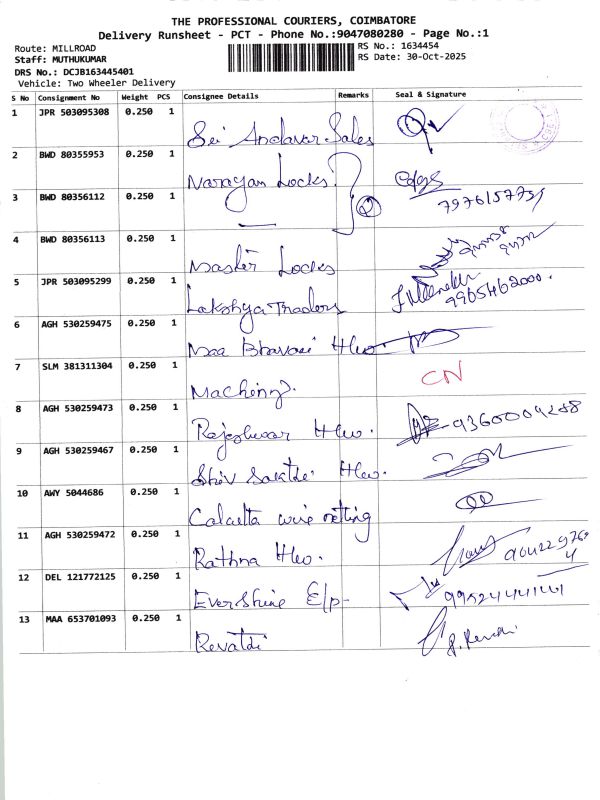 THE PROFESSIONAL COURIERS, COIMBATORE
Delivery Runsheet - PCT - Phone No.:9047080280 - Page No.:1
Route: MILLROAD
RS No.: 1634454
Staff: MUTHUKUMAR
RS Date: 30-Oct-2025
DRS No.: DCJB163445401
Vehicle: Two Wheeler Delivery
S No Consignment No Weight PCS Consignee Details Remarks Seal & Signature
1 JPR 503095308 0.250 1 Sri Andavar Sales
2 BWD 80355953 0.250 1 Narayan Locks
3 BWD 80356112 0.250 1
4 BWD 80356113 0.250 1 Master Locks
5 JPR 503095299 0.250 1 Lakshya Traders 9965462000.
6 AGH 530259475 0.250 1 Maa Bhavani H/w.
7 SLM 381311304 0.250 1 CN
8 AGH 530259473 0.250 1 Rajeshwar H/w.
9 AGH 530259467 0.250 1 Shiv Sakthi H/w.
10 AWY 5044686 0.250 1 Calcutta wire netting
11 AGH 530259472 0.250 1 Rathna H/w.
12 DEL 121772125 0.250 1 Evershine E/p-
13 MAA 653701093 0.250 1 Revathi